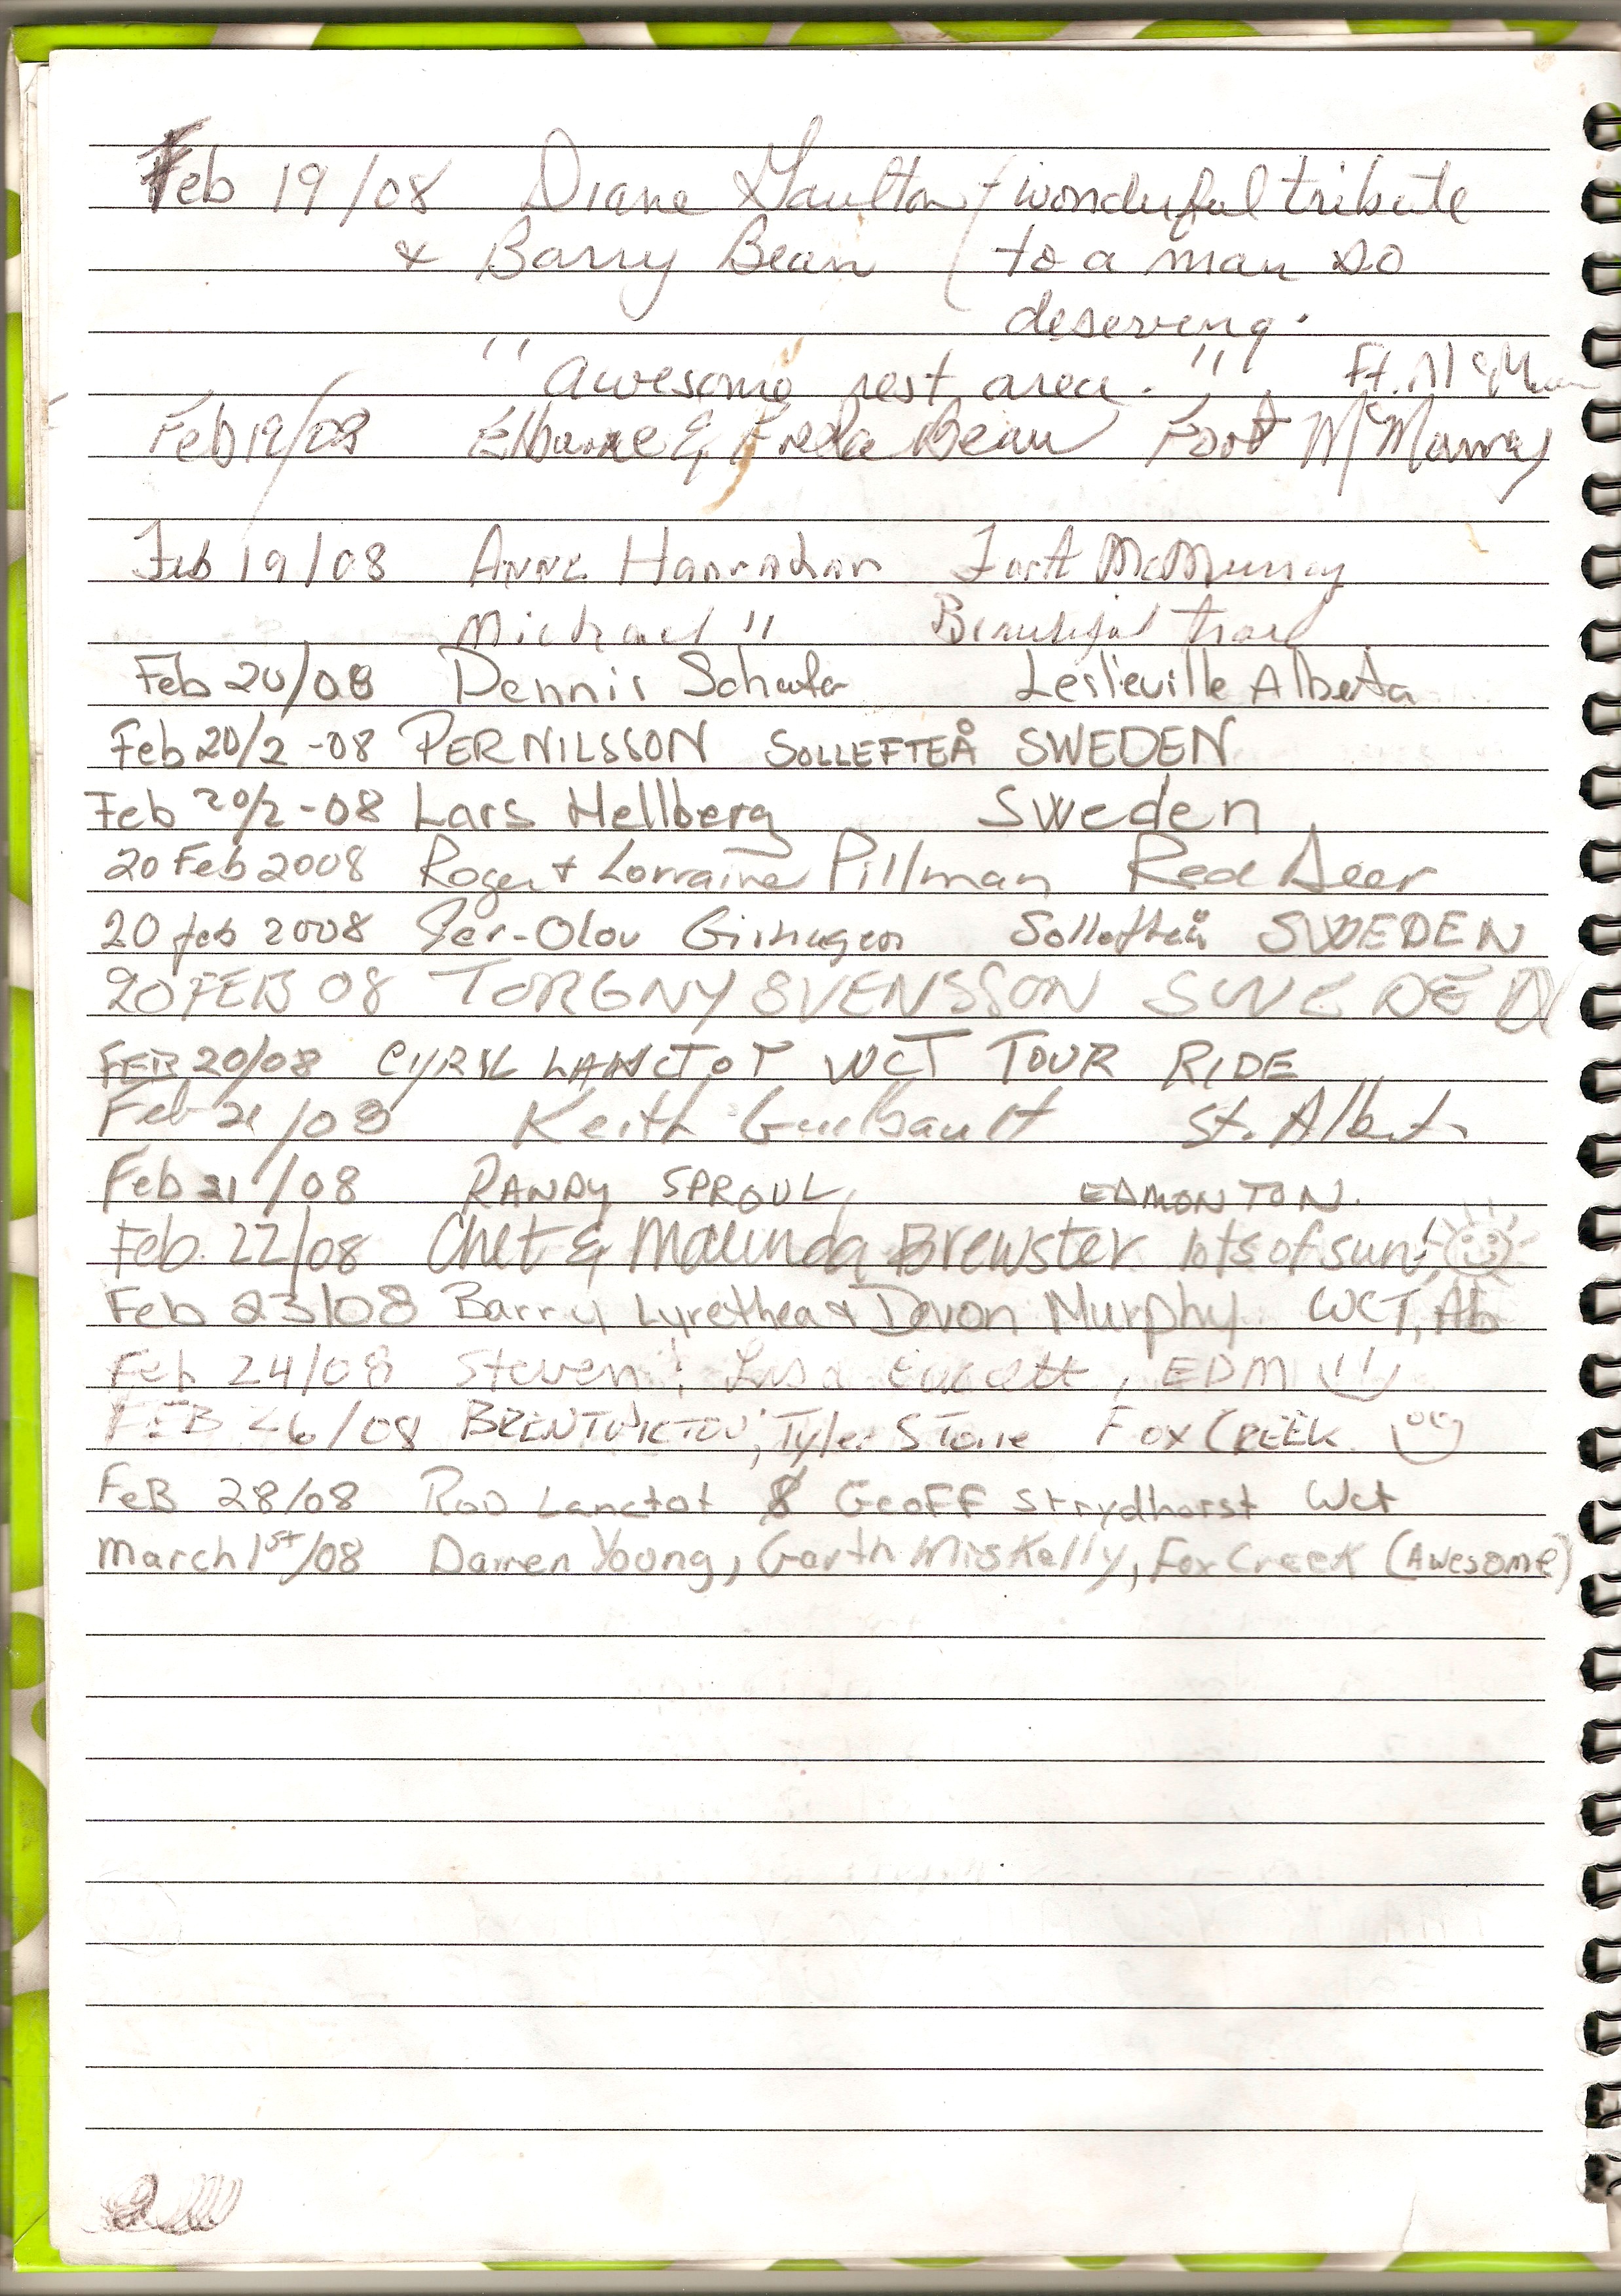 Feb 19/08 Diane Gaulton wonderful tribute
& Barry Bean to a man so
deserving.
"Awesome rest area." Ft. McMurr
Feb 19/08 & Freda Bean Fort McMurray
Feb 19/08 Anne Hanrahan Fort McMurray
Michael " Beautiful trail
Feb 20/08 Dennis Leslieville Alberta
Feb 20/2-08 PER NILSSON SOLLEFTEÅ SWEDEN
Feb 20/2-08 Lars Hellberg Sweden
20 Feb 2008 Roger + Lorraine Pillman Red Deer
20 feb 2008 Per-Olov Sollefteå SWEDEN
20 FEB 08 TORGNY SVENSSON SWEDEN
FEB 20/08 CYRIL LANCTOT WCT TOUR RIDE
Feb 21/08 Keith Guilbault St. Albert
Feb 21/08 RANDY SPROUL, EDMONTON.
Feb. 22/08 Chet & Malinda Brewster lots of sun!
Feb 23/08 Barry Lyrethea & Devon Murphy WCT, Ab
Feb 24/08 Steven Lisa , EDM
FEB 26/08 BRENT , Tyler Stone FOX CREEK
FeB 28/08 ROD Lanctot & GeoFF Strydhorst Wct
March 1st/08 Darren Young, Garth Miskelly, Fox Creek (Awesome)